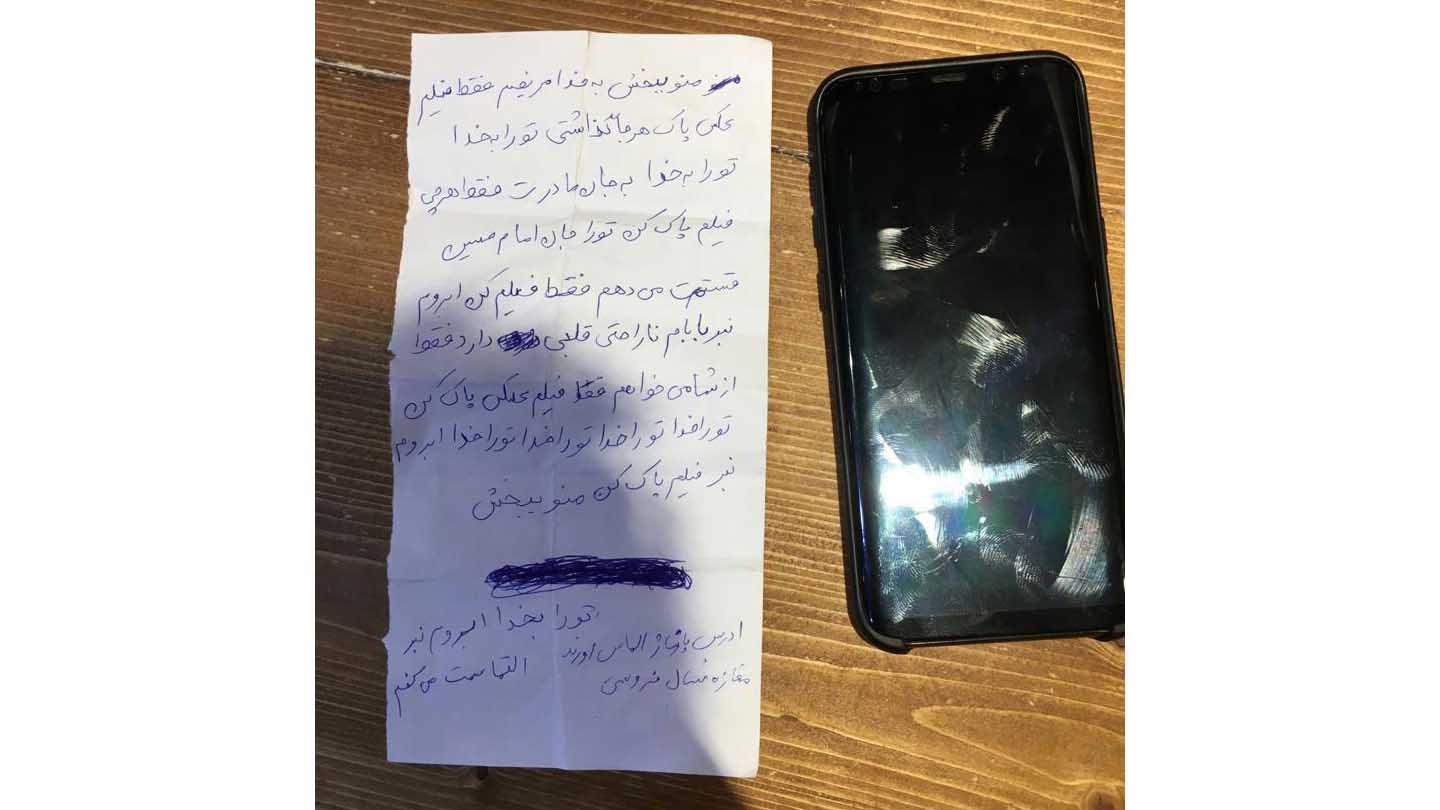 منو ببخش به خدا مریضم فقط فیلم
عکس پاک هرجا گذاشتی تورا بخدا
تورا به خدا به جان مادرت فقط هرچی
فیلم پاک کن تورا جان امام حسین
قسمت می دهم فقط فیلم کن ابروم
نبر بابام ناراحتی قلبی دارد فقط
از شما می خواهم فقط فیلم عکس پاک کن
تورا خدا تورا خدا تورا خدا تورا خدا ابروم
نبر فیلم پاک کن منو ببخش
تورا بخدا ابروم نبر
التماست می کنم
ادرس پاساژ الماس
مغازه فروسی